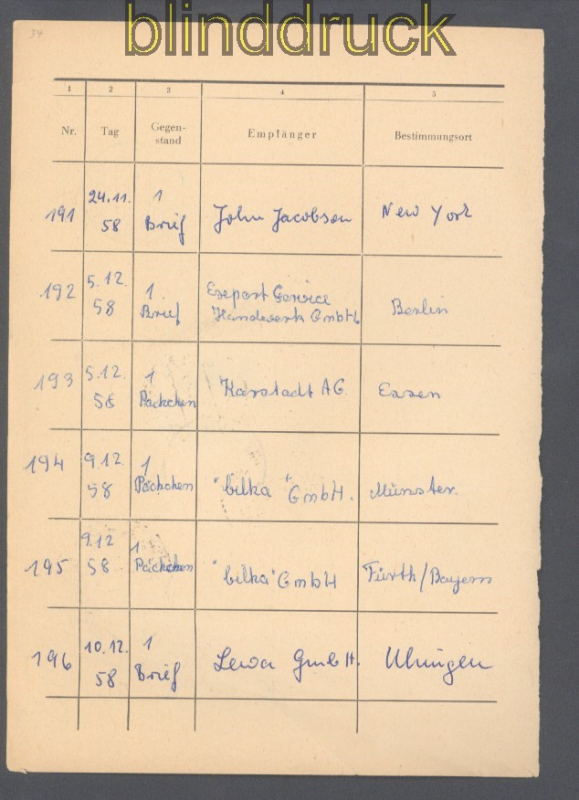 blinddruck
34
1 2 3 4 5
Nr. Tag Gegen-
stand Empfänger Bestimmungsort
191 24.11. 1
58 Brief John Jacobsen New York
192 5.12. 1 Exeport Service
58 Brief Handwerk GmbH Berlin
193 5.12. 1
58 Päckchen Karstadt AG Essen
194 9.12 1
58 Päckchen "bilka" GmbH. Münster.
195 9.12 1
58 Päckchen "bilka" GmbH Fürth/Bayern
196 10.12. 1
58 Brief Lewa GmbH. Uhingen